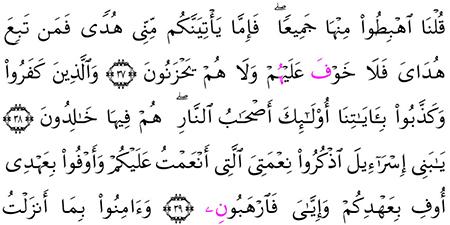 قُلۡنَا ٱهۡبِطُواْ مِنۡهَا جَمِيعٗاۖ فَإِمَّا يَأۡتِيَنَّكُم مِّنِّي هُدٗى فَمَن تَبِعَ
هُدَايَ فَلَا خَوۡفَ عَلَيۡهُمۡ وَلَا هُمۡ يَحۡزَنُونَ ٣٧ وَٱلَّذِينَ كَفَرُواْ
وَكَذَّبُواْ بِـَٔايَٰتِنَا أُوْلَٰٓئِكَ أَصۡحَٰبُ ٱلنَّارِۖ هُمۡ فِيهَا خَٰلِدُونَ ٣٨
يَٰبَنِي إِسۡرَٰٓءِيلَ ٱذۡكُرُواْ نِعۡمَتِيَ ٱلَّتِي أَنۡعَمۡتُ عَلَيۡكُمۡ وَأَوۡفُواْ بِعَهۡدِي
أُوفِ بِعَهۡدِكُمۡ وَإِيَّٰيَ فَٱرۡهَبُونِۦ ٣٩ وَءَامِنُواْ بِمَا أَنزَلۡتُ